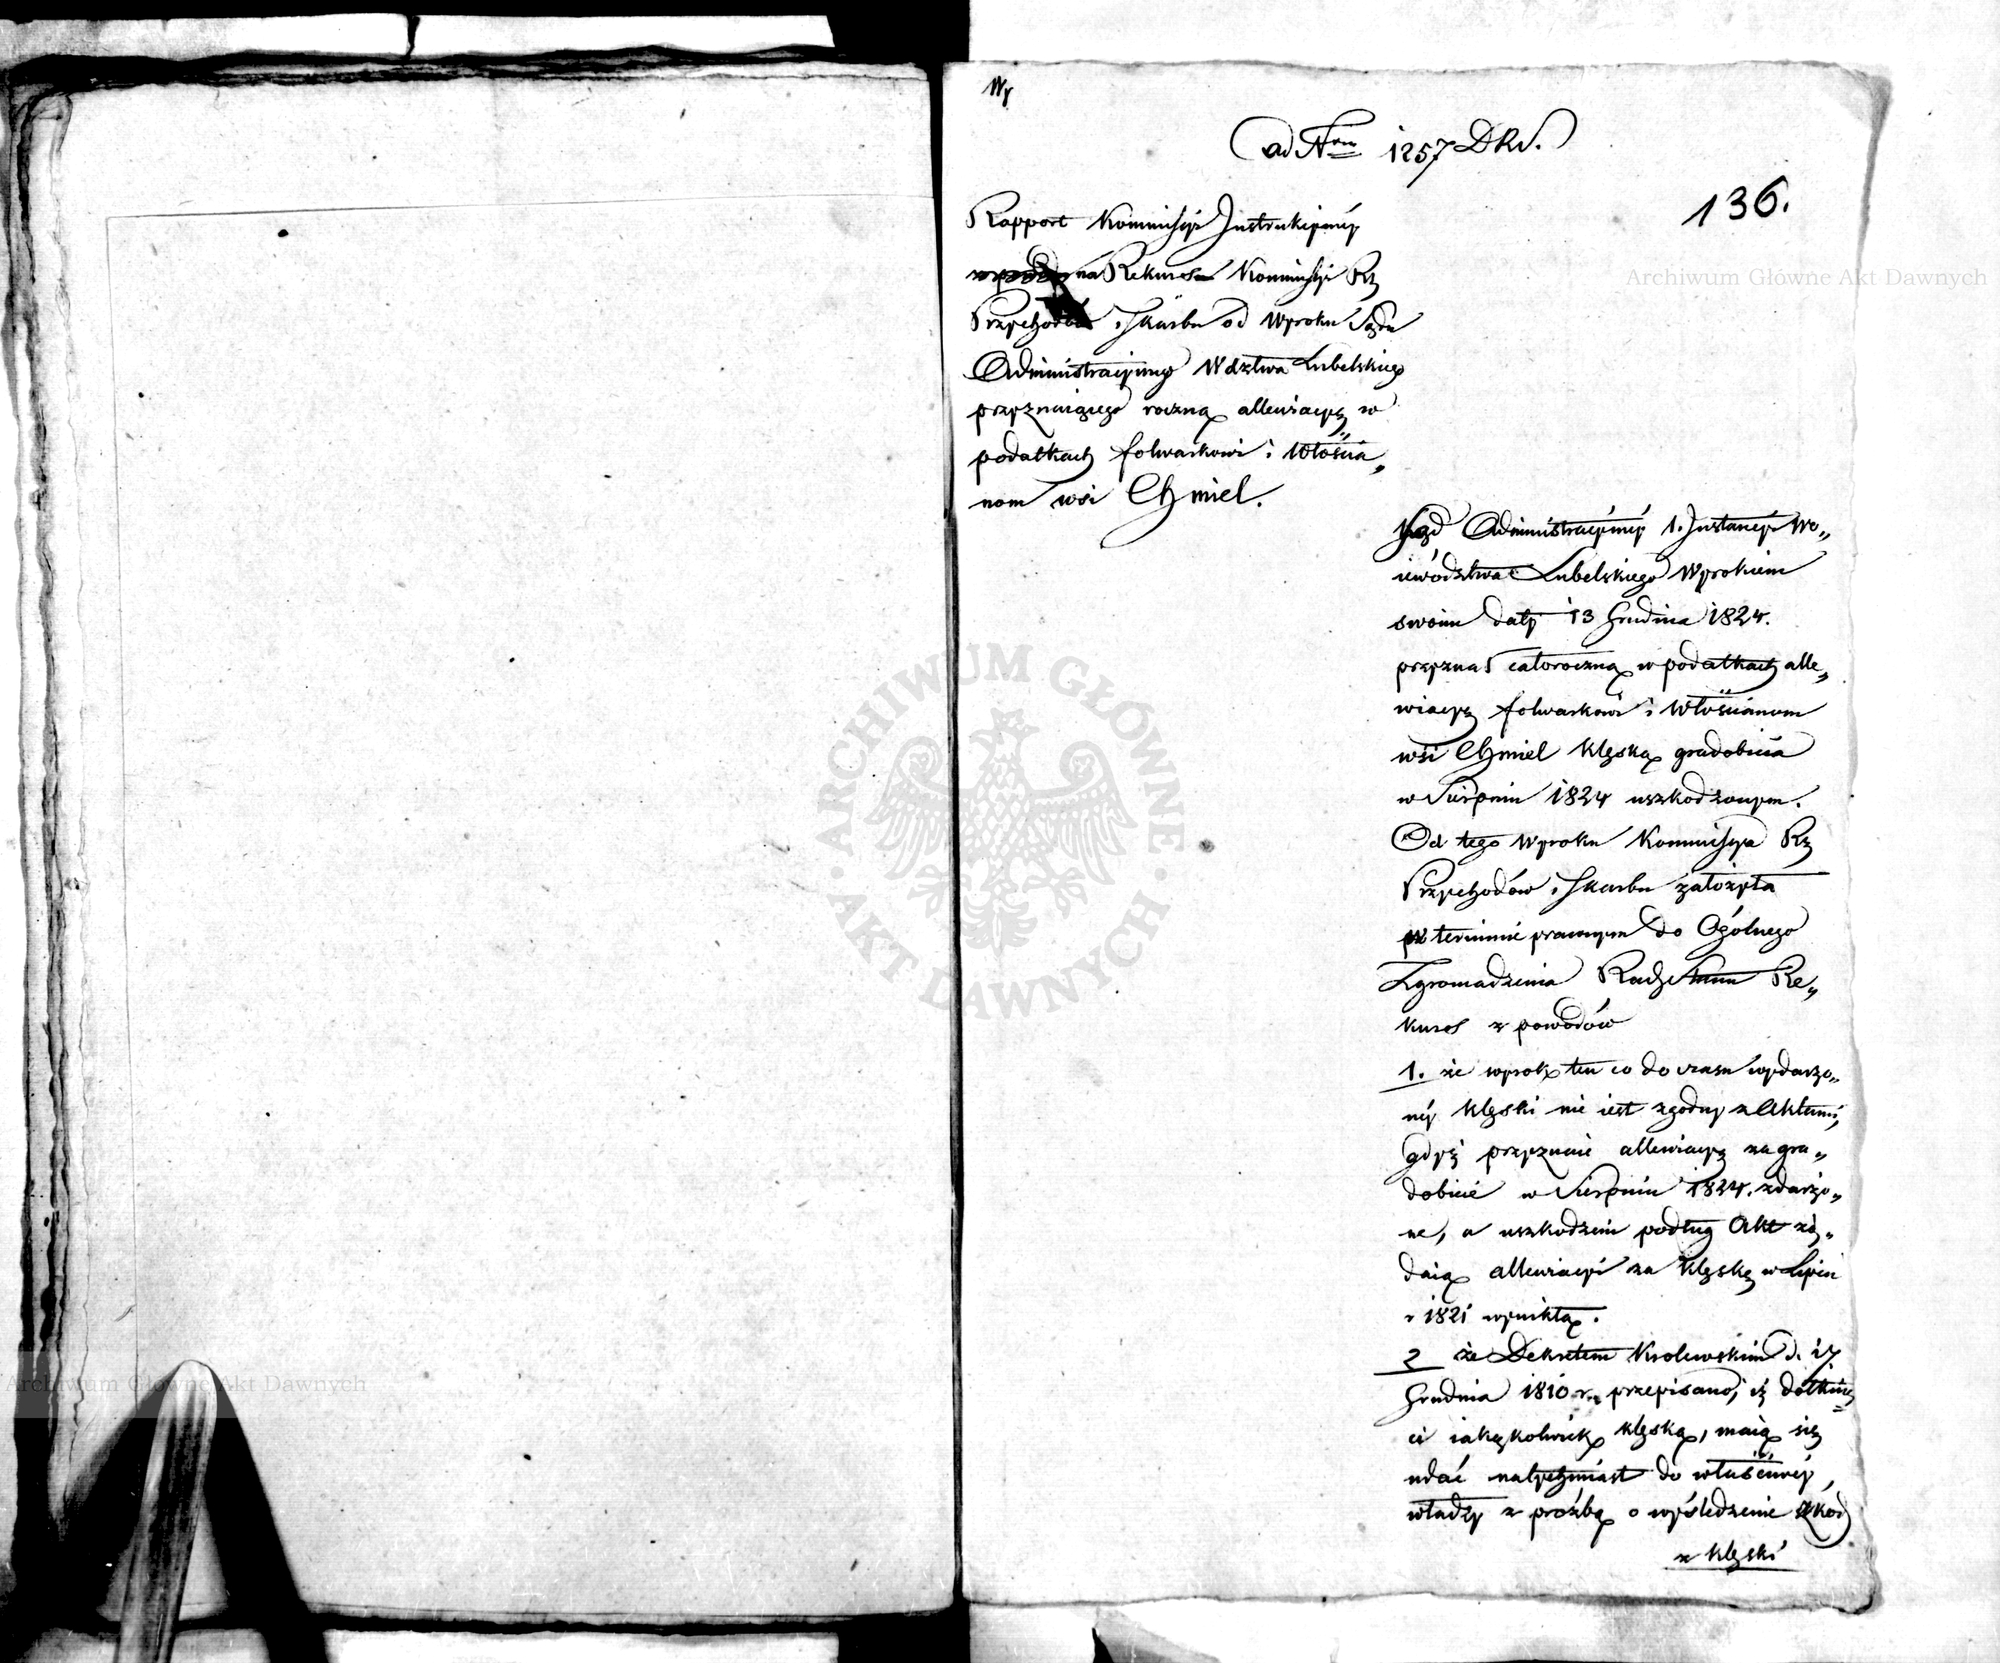 Wy
ad Nrm 1257 DRS.
136.
Rapport Kommissyi Instrukcyinéy
na Rekurs Kommissyi Rz
Przychodów i Skarbu od Wyroku Sądu
Administracyinego Wdztwa Lubelskiego
przyznaiącego roczną allewiacyę w
podatkach folwarkowi i Włościa„
nom wsi Chmiel.
Sąd Administracyiny 1. Instancyi Wo„
iewództwa Lubelskiego Wyrokiem
swoim daty 13 Grudnia 1824.
przyznał całoroczną w podatkach alle„
wiacyę folwarkowi i Włościanom
wsi Chmiel klęską gradobicia
w Sierpniu 1824 uszkodzonym.
Od tego Wyroku Kommissya Rz
Przychodów i Skarbu założyła
w terminie prawnym do Ogólnego
Zgromadzenia Rady Stanu Re„
kurs z powodów
1. że wyrok ten co do czasu wydarzo„
néy klęski nie iest zgodny z Aktami,
gdyż przyznaie allewiacyę za gra„
dobicie w Sierpniu 1824. zdarzo„
ne, a uszkodzeni podług Akt żą„
daią allewiacyi za klęskę w Lipcu
r 1821 wynikłą.
2 że Dekretem Królewskim d. 17
Grudnia 1810 r. przepisano, iż dotknię„
ci iakąkolwiek klęską, maią się
udać natychmiast do właściwéy
władzy z prośbą o wyśledzenie szkód
z klęski